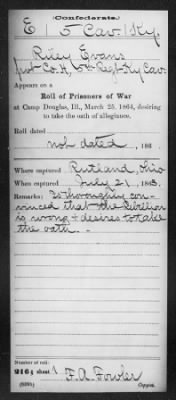 (Confederate.)
E | 5 Cav. | Ky.
Riley Evans
Co. A, 5th Reg. Ky Cav.
Appears on a
Roll of Prisoners of War
at Camp Douglas, Ill., March 25, 1864, desiring
to take the oath of allegiance.
Roll dated
not dated, 186 .
Where captured Rutland, Ohio
When captured July 21, 1863.
Remarks: Is thoroughly con-
vinced that the Rebellion
is wrong & desires to take
the oath.
Number of roll:
216; sheet 1
F. A. Fowler
Copyist.